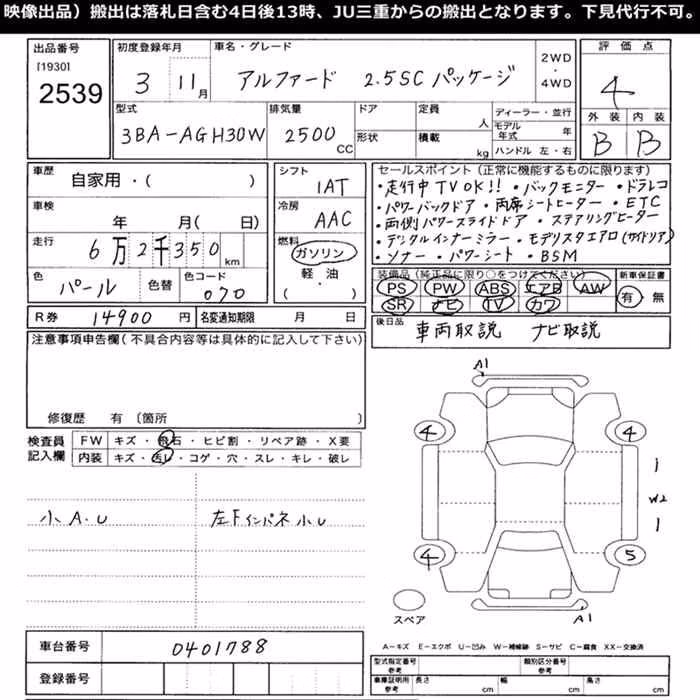 映像出品）搬出は落札日含む4日後13時、JU三重からの搬出となります。下見代行不可。
出品番号 [1930] 2539
初度登録年月 3 11月
車名・グレード アルファード 2.5SCパッケージ
2WD・4WD
評価点 4
外装 B 内装 B
型式 3BA-AGH30W
排気量 2500 CC
ドア 形状
定員 人 積載 kg
ディーラー・並行
モデル年式 年
ハンドル 左・右
車歴 自家用・( )
車検 年 月( 日)
走行 6万2千350km
色 パール 色替 色コード 070
シフト 1AT
冷房 AAC
燃料 ガソリン 軽・油 ( )
セールスポイント（正常に機能するものに限ります）
・走行中TVOK!!・バックモニター・ドラレコ
・パワーバックドア・両席シートヒーター・ETC
・両側パワースライドドア・ステアリングヒーター
・デジタルインナーミラー・モデリスタエアロ(サイドリア)
・ソナー・パワーシート・BSM
装備品（純正品に限り○をつけてください） 新車保証書
PS PW ABS エアB AW 有・無
SR ナビ TV カワ
後日品 車両取説 ナビ取説
R券 14900 円 名変通知期限 月 日
注意事項申告欄(不具合内容等は具体的に記入して下さい)
修復歴 有 〔箇所 〕
検査員記入欄
FW キズ・飛石・ヒビ割・リペア跡・X要
内装 キズ・汚レ・コゲ・穴・スレ・キレ・破レ
小A.U 左Fインパネ小U
A1
4 4
1
W2
1
4 5
スペア
A1
車台番号 0401788
登録番号
A－キズ E－エクボ U－凹み W－補修跡 S－サビ C－腐食 XX－交換済
型式指定番号 参考 類別区分番号 参考
車庫証明用 参考 長さ cm 幅 cm 高さ cm